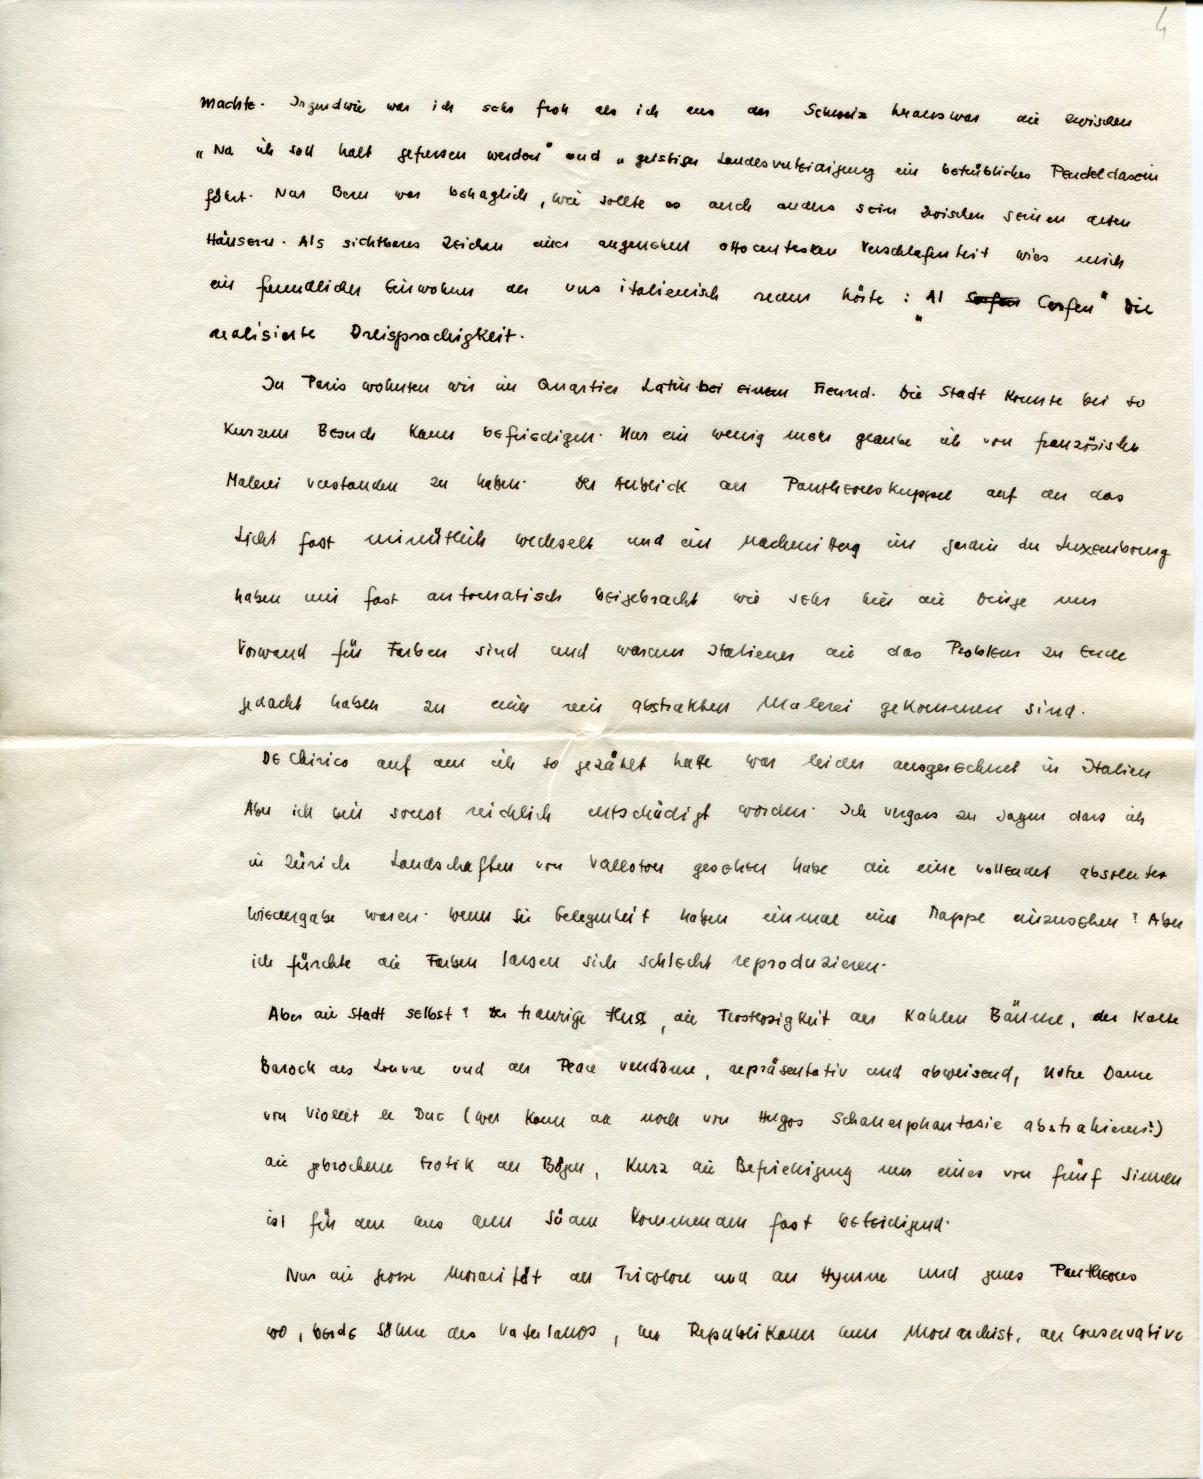 4
machte. Irgendwie war ich sehr froh als ich aus der Schweiz heraus war die zwischen
„Na ich soll halt gefressen werden" und „geistiger Landesverteidigung ein betrübliches Pendeldasein
führt. Nur Bern war behaglich, wie sollte es auch anders sein zwischen seinen alten
Häusern. Als sichtbares Zeichen einer angenehmen ottocentesken Verschlafenheit wies mich
ein freundlicher Einwohner der uns italienisch reden hörte: „Al Corfen" Die
realisierte Dreisprachigkeit.
In Paris wohnten wir im Quartier Latin bei einem Freund. Die Stadt konnte bei so
kurzem Besuch kaum befriedigen. Nur ein wenig mehr glaube ich von französischer
Malerei verstanden zu haben. Der Anblick der Pantheonskuppel auf der das
Licht fast minütlich wechselt und ein Nachmittag im Jardin du Luxembourg
haben mir fast automatisch beigebracht wie sehr hier die Dinge nur
Vorwand für Farben sind und warum Italiener die das Problem zu Ende
gedacht haben zu einer rein abstrakten Malerei gekommen sind.
De Chirico auf den ich so gezählt hatte war leider ausgerechnet in Italien
Aber ich bin sonst reichlich entschädigt worden. Ich vergass zu sagen dass ich
in Zürich Landschaften von Valloton gesehen habe die eine vollendet absoluter
Wiedergabe waren. Wenn Sie Gelegenheit haben einmal eine Mappe einzusehen? Aber
ich fürchte die Farben lassen sich schlecht reproduzieren.
Aber die Stadt selbst? Der traurige Fluss, die Trostlosigkeit der kahlen Bäume, der kalte
Barock des Louvre und der Place Vendôme, repräsentativ und abweisend, Notre Dame
von Viollet le Duc (wer kann da noch von Hugos Schauerphantasie abstrahieren?)
die gebrochene Erotik der Bögen, kurz die Befriedigung nur eines von fünf Sinnen
ist für den aus dem Süden Kommenden fast beleidigend.
Nur die grosse Moralität der Tricolore und der Hymne und jenes Pantheons
wo, beide Söhne des Vaterlands, der Republikaner dem Monarchist, der Conservative